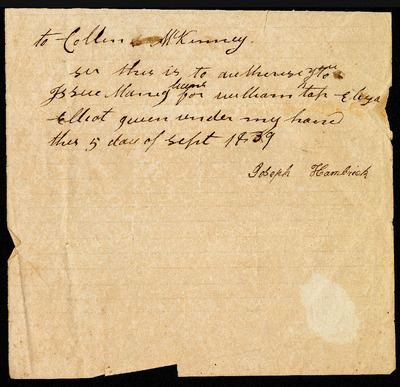 to Collin McKinney.
Sir this is to autherise you
Issue Marrig licens for william tap Eliza
Elliot given under my hand
this 5 day of Sept 1839
Joseph Hambrick